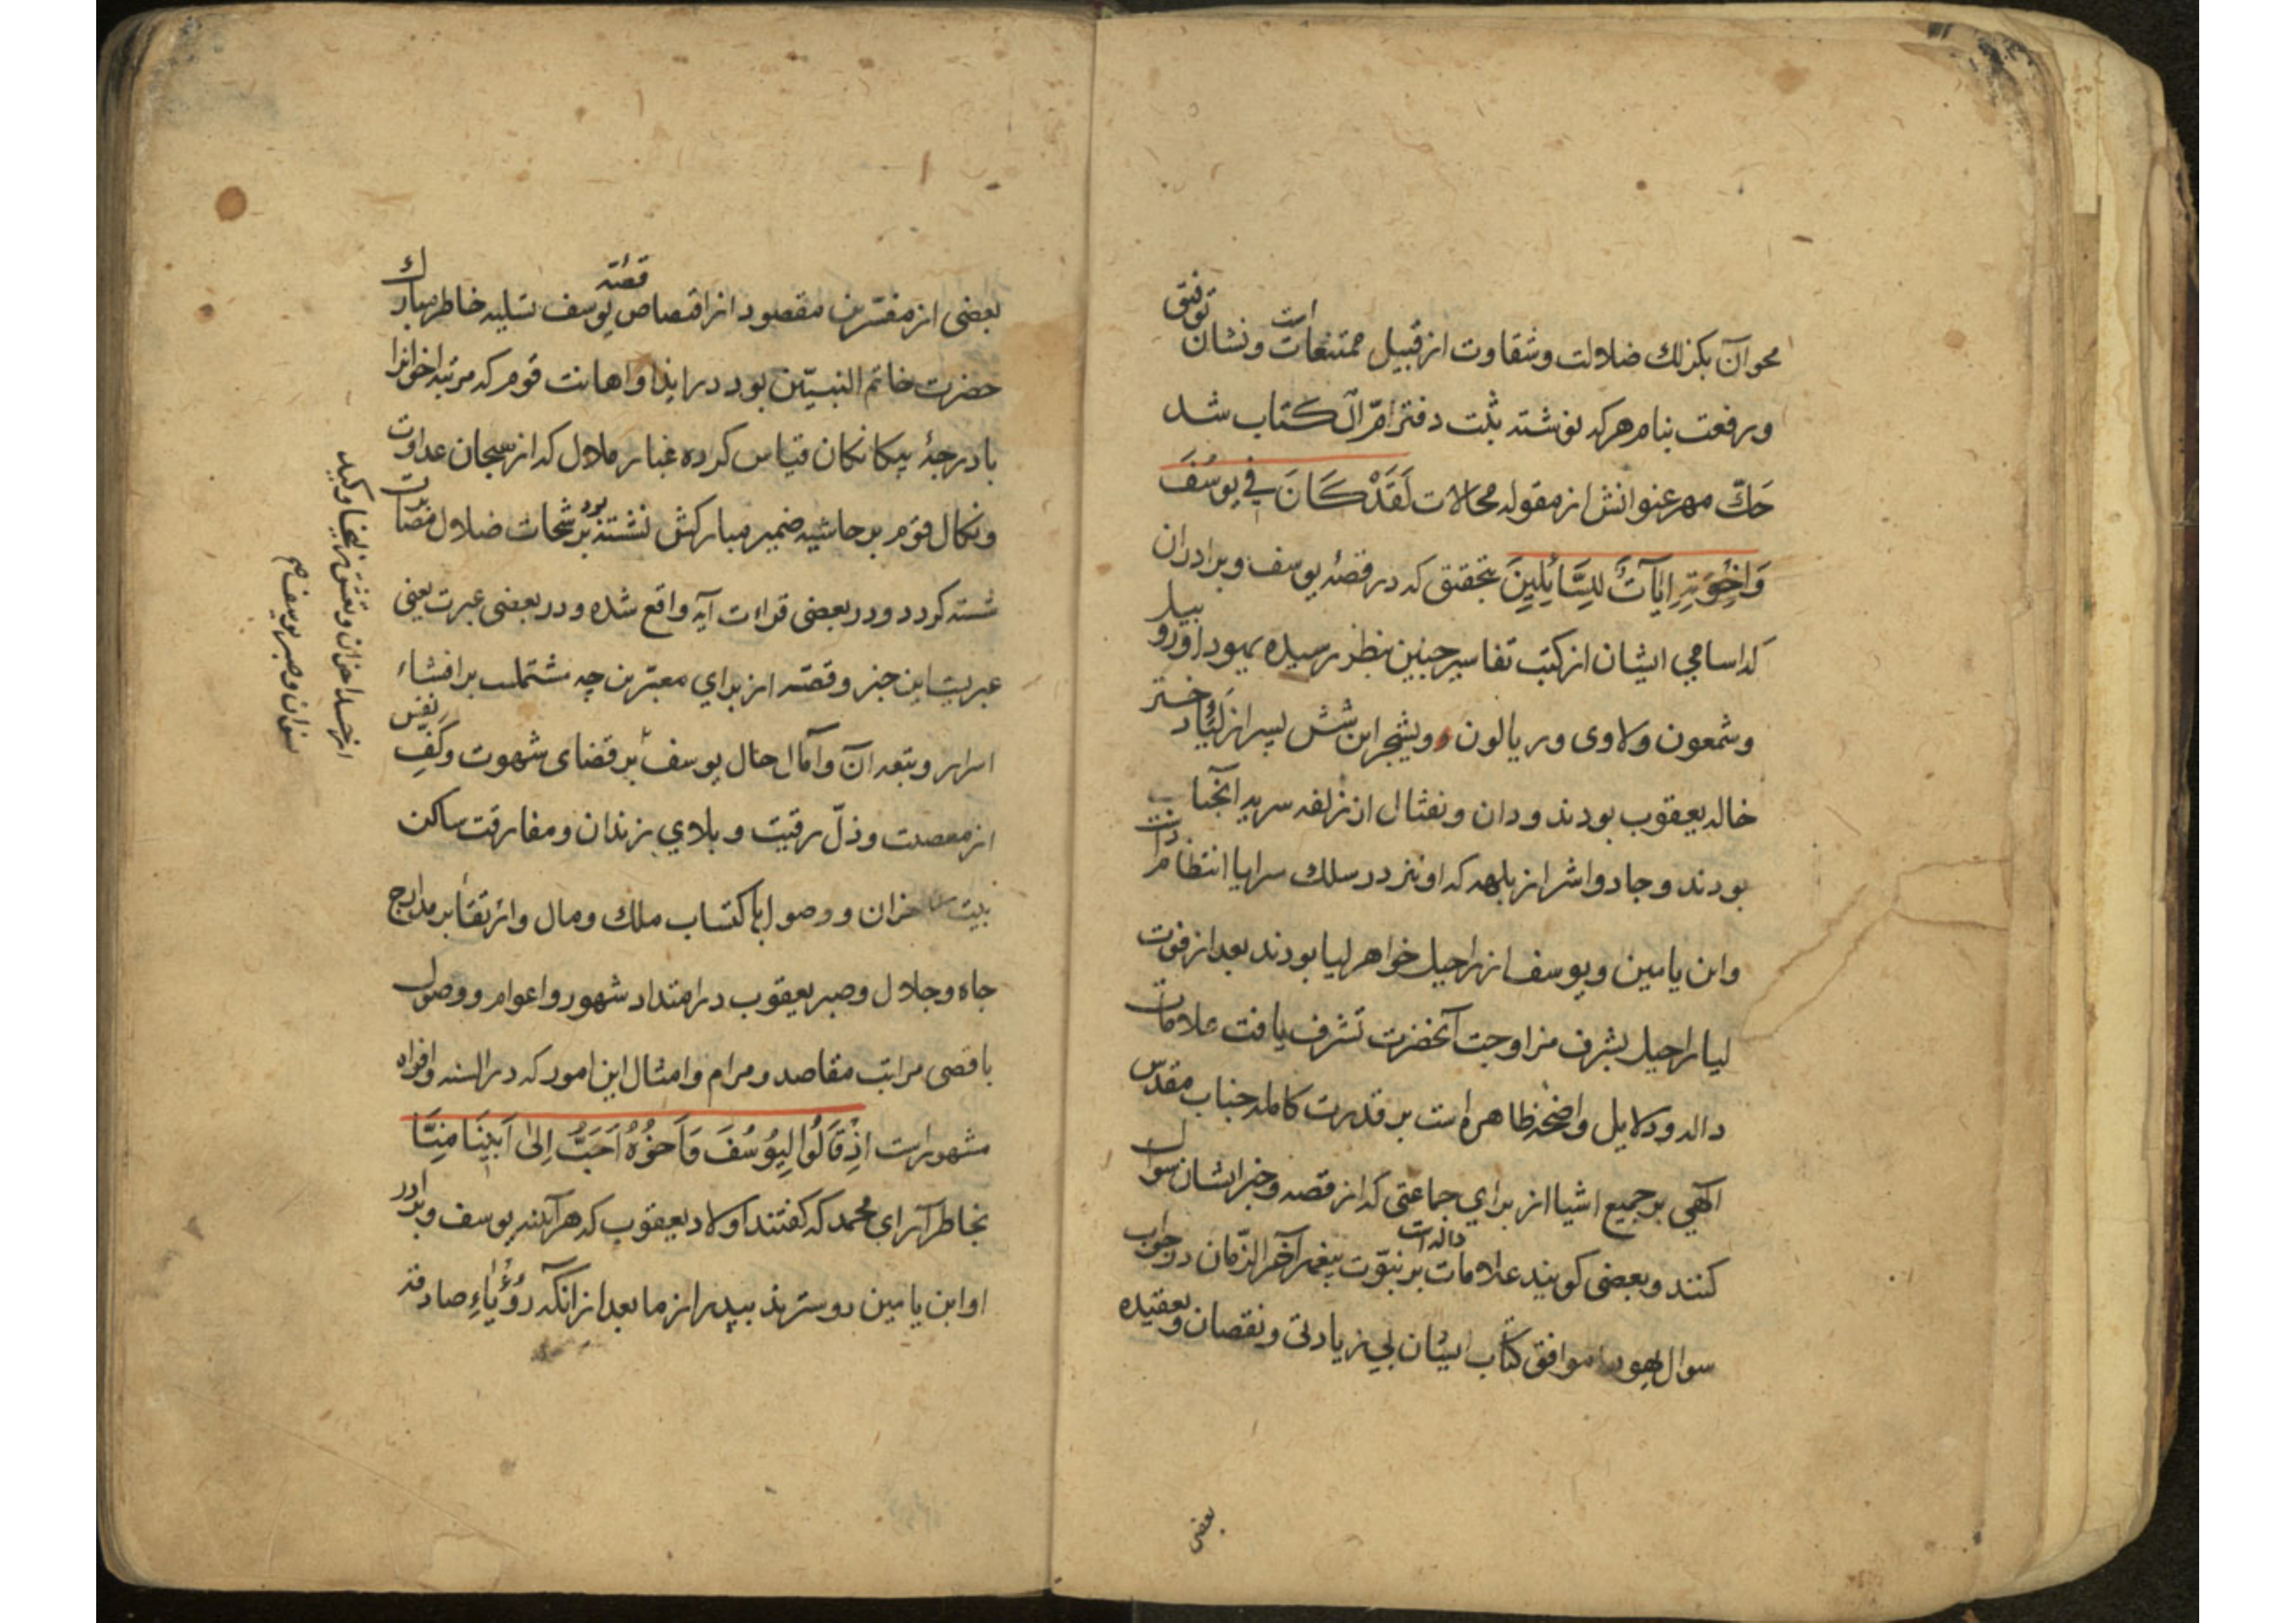 محو آن بكزلك ضلالت وشقاوت از قبيل ممتنعات است ونشان توفيق
ورفعت بنام هركه نوشته بثبت دفتر ام الكتاب شد
حَكّ مهر عنوانش از مقوله محالات لَقَدْ كَانَ فِي يوسُفَ
وَاِخْوَتِهِ اٰيَآتٌ لِلسَّائِلِينَ بتحقيق كه در قصۀ يوسف وبرادران
كه اسامي ايشان از كتب تفاسير چنين بنظر رسيده يهودا وروبيل
وشمعون ولاوى وريالون ويشجر اين شش پسر از ليّا دختر
خاله يعقوب بودند ودان ونفتال از زلفه سريه آنجناب
بودند وجاد واشر از بلهه كه او نيز در سلك سرايا انتظام داشت
وابن يامين ويوسف از راحيل خواهر ليا بودند بعد از فوت
ليا راحيل بشرف مزاوجت آنحضرت تشرف يافت علامات
داله ودلايل واضحه ظاهره است بر قدرت كامله جناب مقدس
الٓهي بر جميع اشيا از براي جماعتى كه از قصه وخبر ايشان سوال
كنند وبعضى كويند علامات داله است بر نبوّت پيغمبر آخر الزّمان در جواب
سوال يهود موافق كتاب ايشان بي زيادتى ونقصان وبعقيده
بعضى
بعضى از مفسّرين مقصود از اقتصاص قصّه يوسف تسليه خاطر مبارك
حضرت خاتم النبيّين بود در ايذا واهانت قوم كه مرتبه اخوانرا
با درجۀ بيكانكان قياس كرده غبار ملال كه از سجان عداوت
ونكال قوم بر حاشيه ضمير مباركش نشسته بود برشحات ضلال
شسته كردد ودر بعضى قراءت آيه واقع شده ودر بعضى عبرت يعنى
عبريست اين خبر وقصّه از براي معتبرين چه مشتملست بر افشاء
اسرار وتبعه آن وآمال حال يوسف بر قضاى شهوت وكفِ نفس
از معصيت وذلّ رقيت وبلاي زندان ومفارقت ساكن
بيت احزان ووصول باكتساب ملك ومال وارتقا بر مدارج
جاه وجلال وصبر يعقوب در امتداد شهور واعوام ووصول
باقصى مراتب مقاصد ومرام وامثال اين امور كه در السنه وافواه
مشهور است اِذْ قَالُوا لَيُوسُفَ وَاَخُوهُ اَحَبُّ اِلىٰ اَبِينَا مِنَّا
بخاطر آر اي محمد كه كفتند اولاد يعقوب كه هر آينه يوسف وبرادر
او ابن يامين دوسترند بپدر از ما بعد از آنكه رُؤْيَاءِ صادقه
از حسد اخوان وتعشق زليخا وكيد
نسوان وصبر يوسف ع م